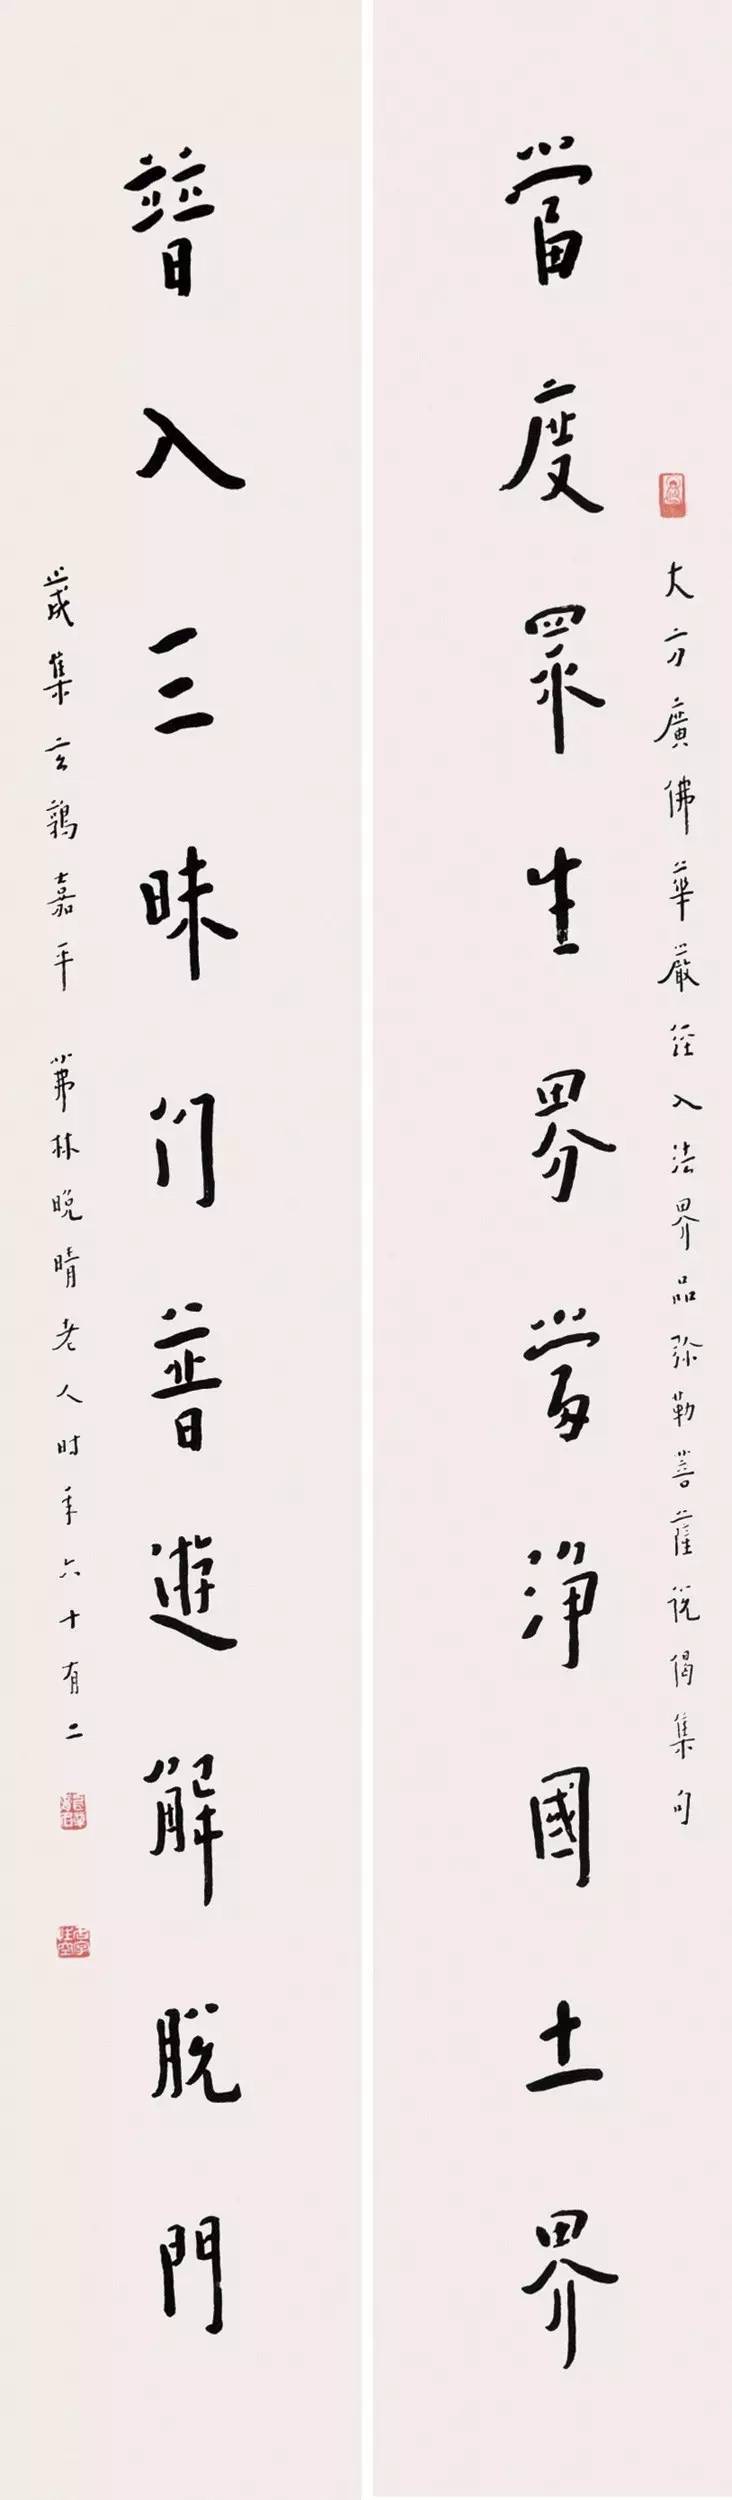 大方廣佛華嚴經入法界品弥勒菩薩說偈集句
當度眾生界當淨國土界
普入三昧門普遊解脫門
歲集玄鶉嘉平 茀林晚晴老人時年六十有二